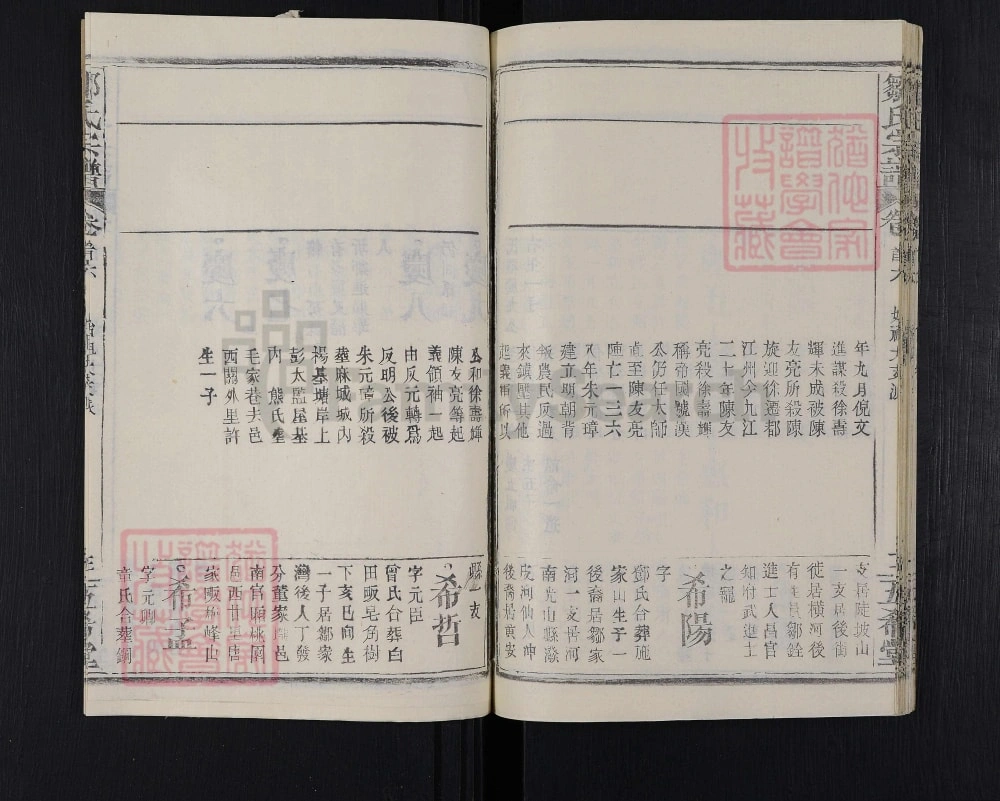 鄒氏宗譜
卷首六
年九月倪文
進謀殺徐壽
輝未成被陳
友亮所殺陳
旋迎徐遷都
江州今九江
二十年陳友
亮殺徐壽輝
稱帝國號漢
公仍任太師
直至陳友亮
陣亡一三六
八年朱元璋
建立明朝背
叛農民反過
來鎮壓其他
起義軍所以
公和徐壽輝
陳友亮等起
義領袖一起
由反元轉爲
反明公後被
朱元璋所殺
葬麻城城內
楊基塘岸上
彭太監屋基
內 熊氏葬
毛家巷夫邑
西關外里許
生一子
支居陡坡山
一支居後街
徙居橫河後
有 鄒銓
進士人昌官
知府武進士
之龍
希陽
字
鄧氏合葬施
家山生子一
後裔居鄒家
河一支居河
南光山縣潑
皮河仙人坤
後裔居黃安
縣一支
希哲
字元臣
曾氏合葬白
田畈皂角樹
下亥巳向生
一子居鄒家
灣後人丁發
分董家 邑
南官 桃園
邑西廿里唐
家畈 峰山
希孟
字元聘
童氏合葬銅
鄒氏宗譜
卷首六